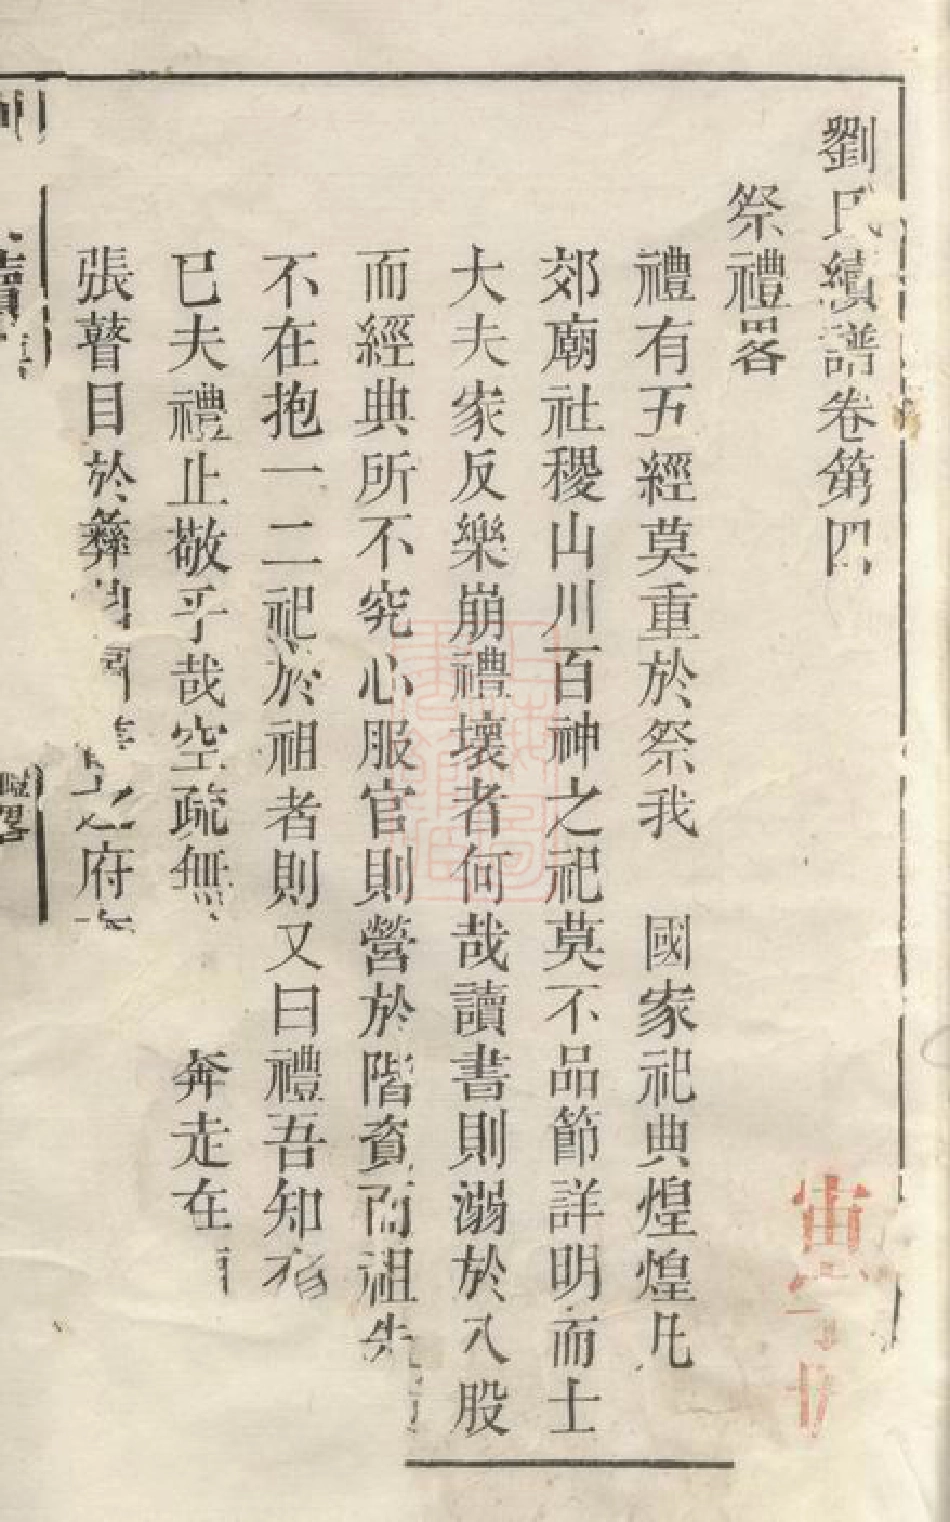 劉氏續譜卷第四
祭禮畧
禮有五經莫重於祭我　國家祀典煌煌凡
郊廟社稷山川百神之祀莫不品節詳明而士
大夫家反樂崩禮壞者何哉讀書則溺於八股
而經典所不究心服官則營於階資而祖先
不在抱一二祀於祖者則又曰禮吾知有
已夫禮止敬乎哉空疏無　奔走在
張瞽目於彝　之府
寅